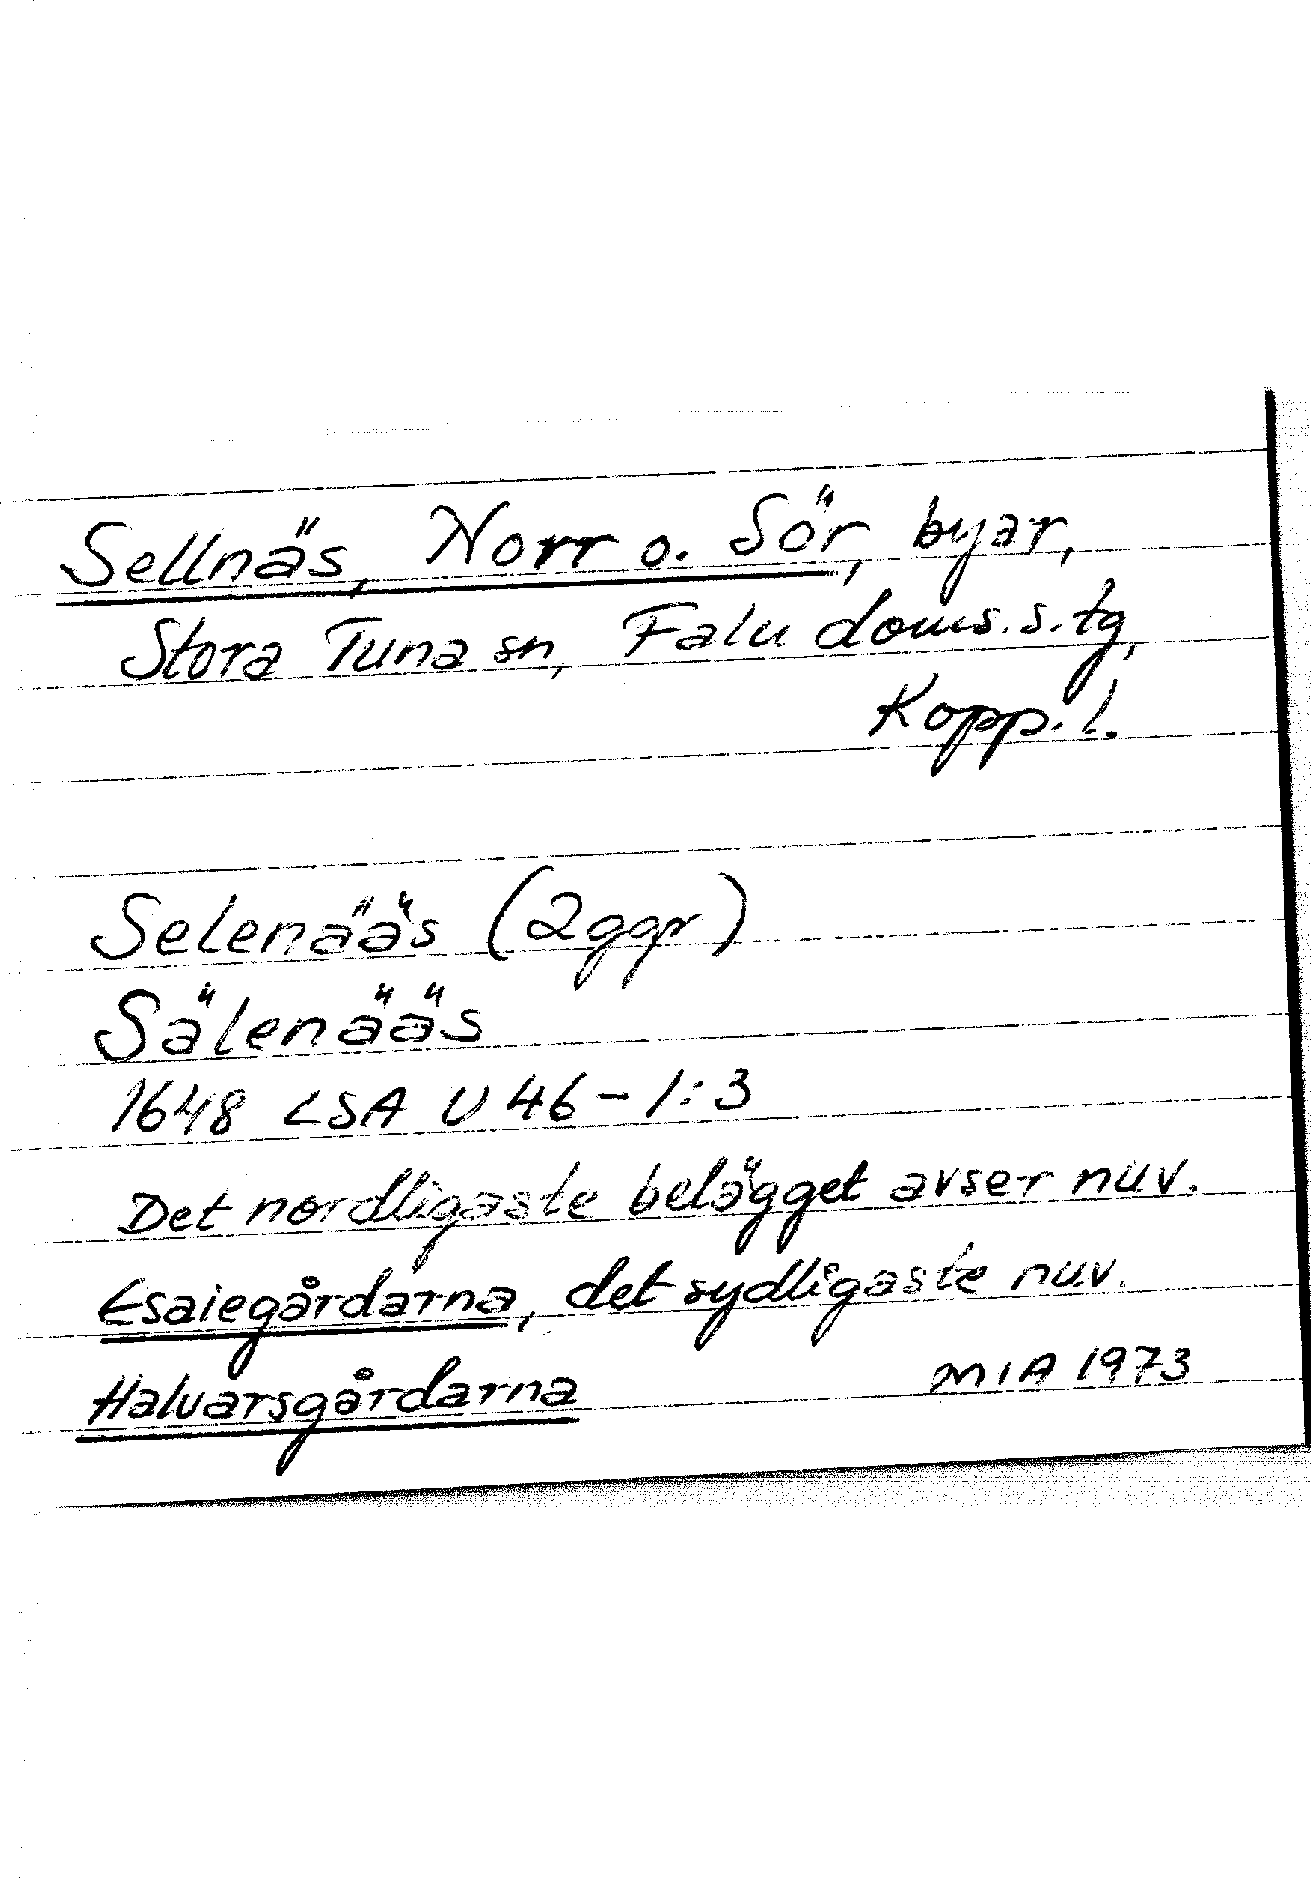 Sellnäs, Norr o. Sör, byar,
Stora Tuna sn, Falu doms.s.tg,
Kopp. l.
Selenääs (2ggr)
Sälenääs
1648 LSA U 46-1:3
Det nordligaste belägget avser nuv.
Esaiegårdarna, det sydligaste nuv.
Halvarsgårdarna MIA 1973